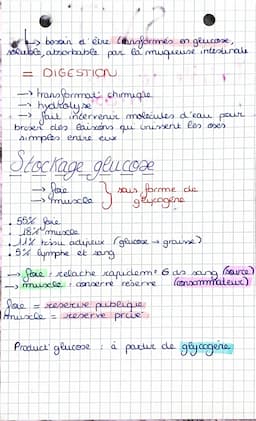 ↳ besoin d'être transformés en glucose,
soluble, absorbable par la muqueuse intestinale
= DIGESTION
→ transformat° chimique
→ hydrolyse
→ fait intervenir molécules d'eau pour
briser des liaisons qui unissent les oses
simples entre eux
Stockage glucose
→ foie } sous forme de
→ muscle } glycogène
• 55% foie
• 18% muscle
• 11% tissu adipeux (glucose → graisse)
• 5% lymphe et sang
→ foie : relache rapidem^t G ds sang (source)
→ muscle : conserve réserve (consommateur)
foie = réserve publique
muscle = réserve privé
Product° glucose : à partir de glycogène